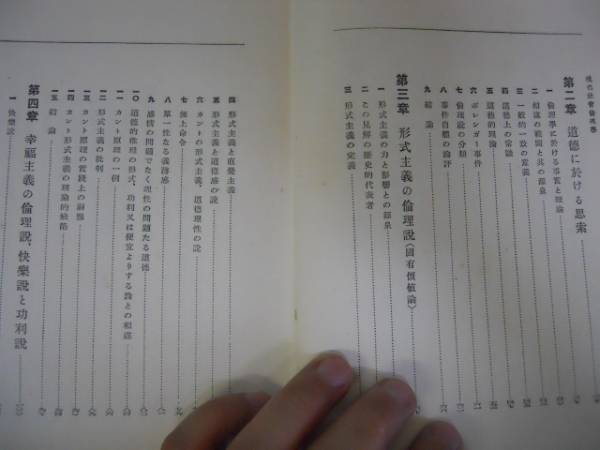 現代社會倫理學
第二章 道德に於ける思索
一 倫理學に於ける事實と理論
二 相違の範圍と其の源泉
三 一般的一致の意義
四 道德上の常識
五 道德的理論
六 ボレンガー事件
七 倫理說の分類
八 事件自體の論評
九 結論
第三章 形式主義の倫理說(固有價値論)
一 形式主義の力と影響との源泉
二 この見解の歷史的代表者
三 形式主義の定義
四 形式主義と直覺主義
五 形式主義と道德感の說
六 カントの形式主義、道德理性の說
七 無上命令
八 單一性なる義務感
九 感情の問題でなく理性の問題たる道德
一〇 道德的推理の形式、功利又は便宜よりする論との相違
一一 カント原理の一例
一二 形式主義の批判
一三 カント原理の實踐上の
一四 カント形式主義の理論的缺陷
一五 結論
第四章 幸福主義の倫理說、快樂說と功利說
一 快樂說